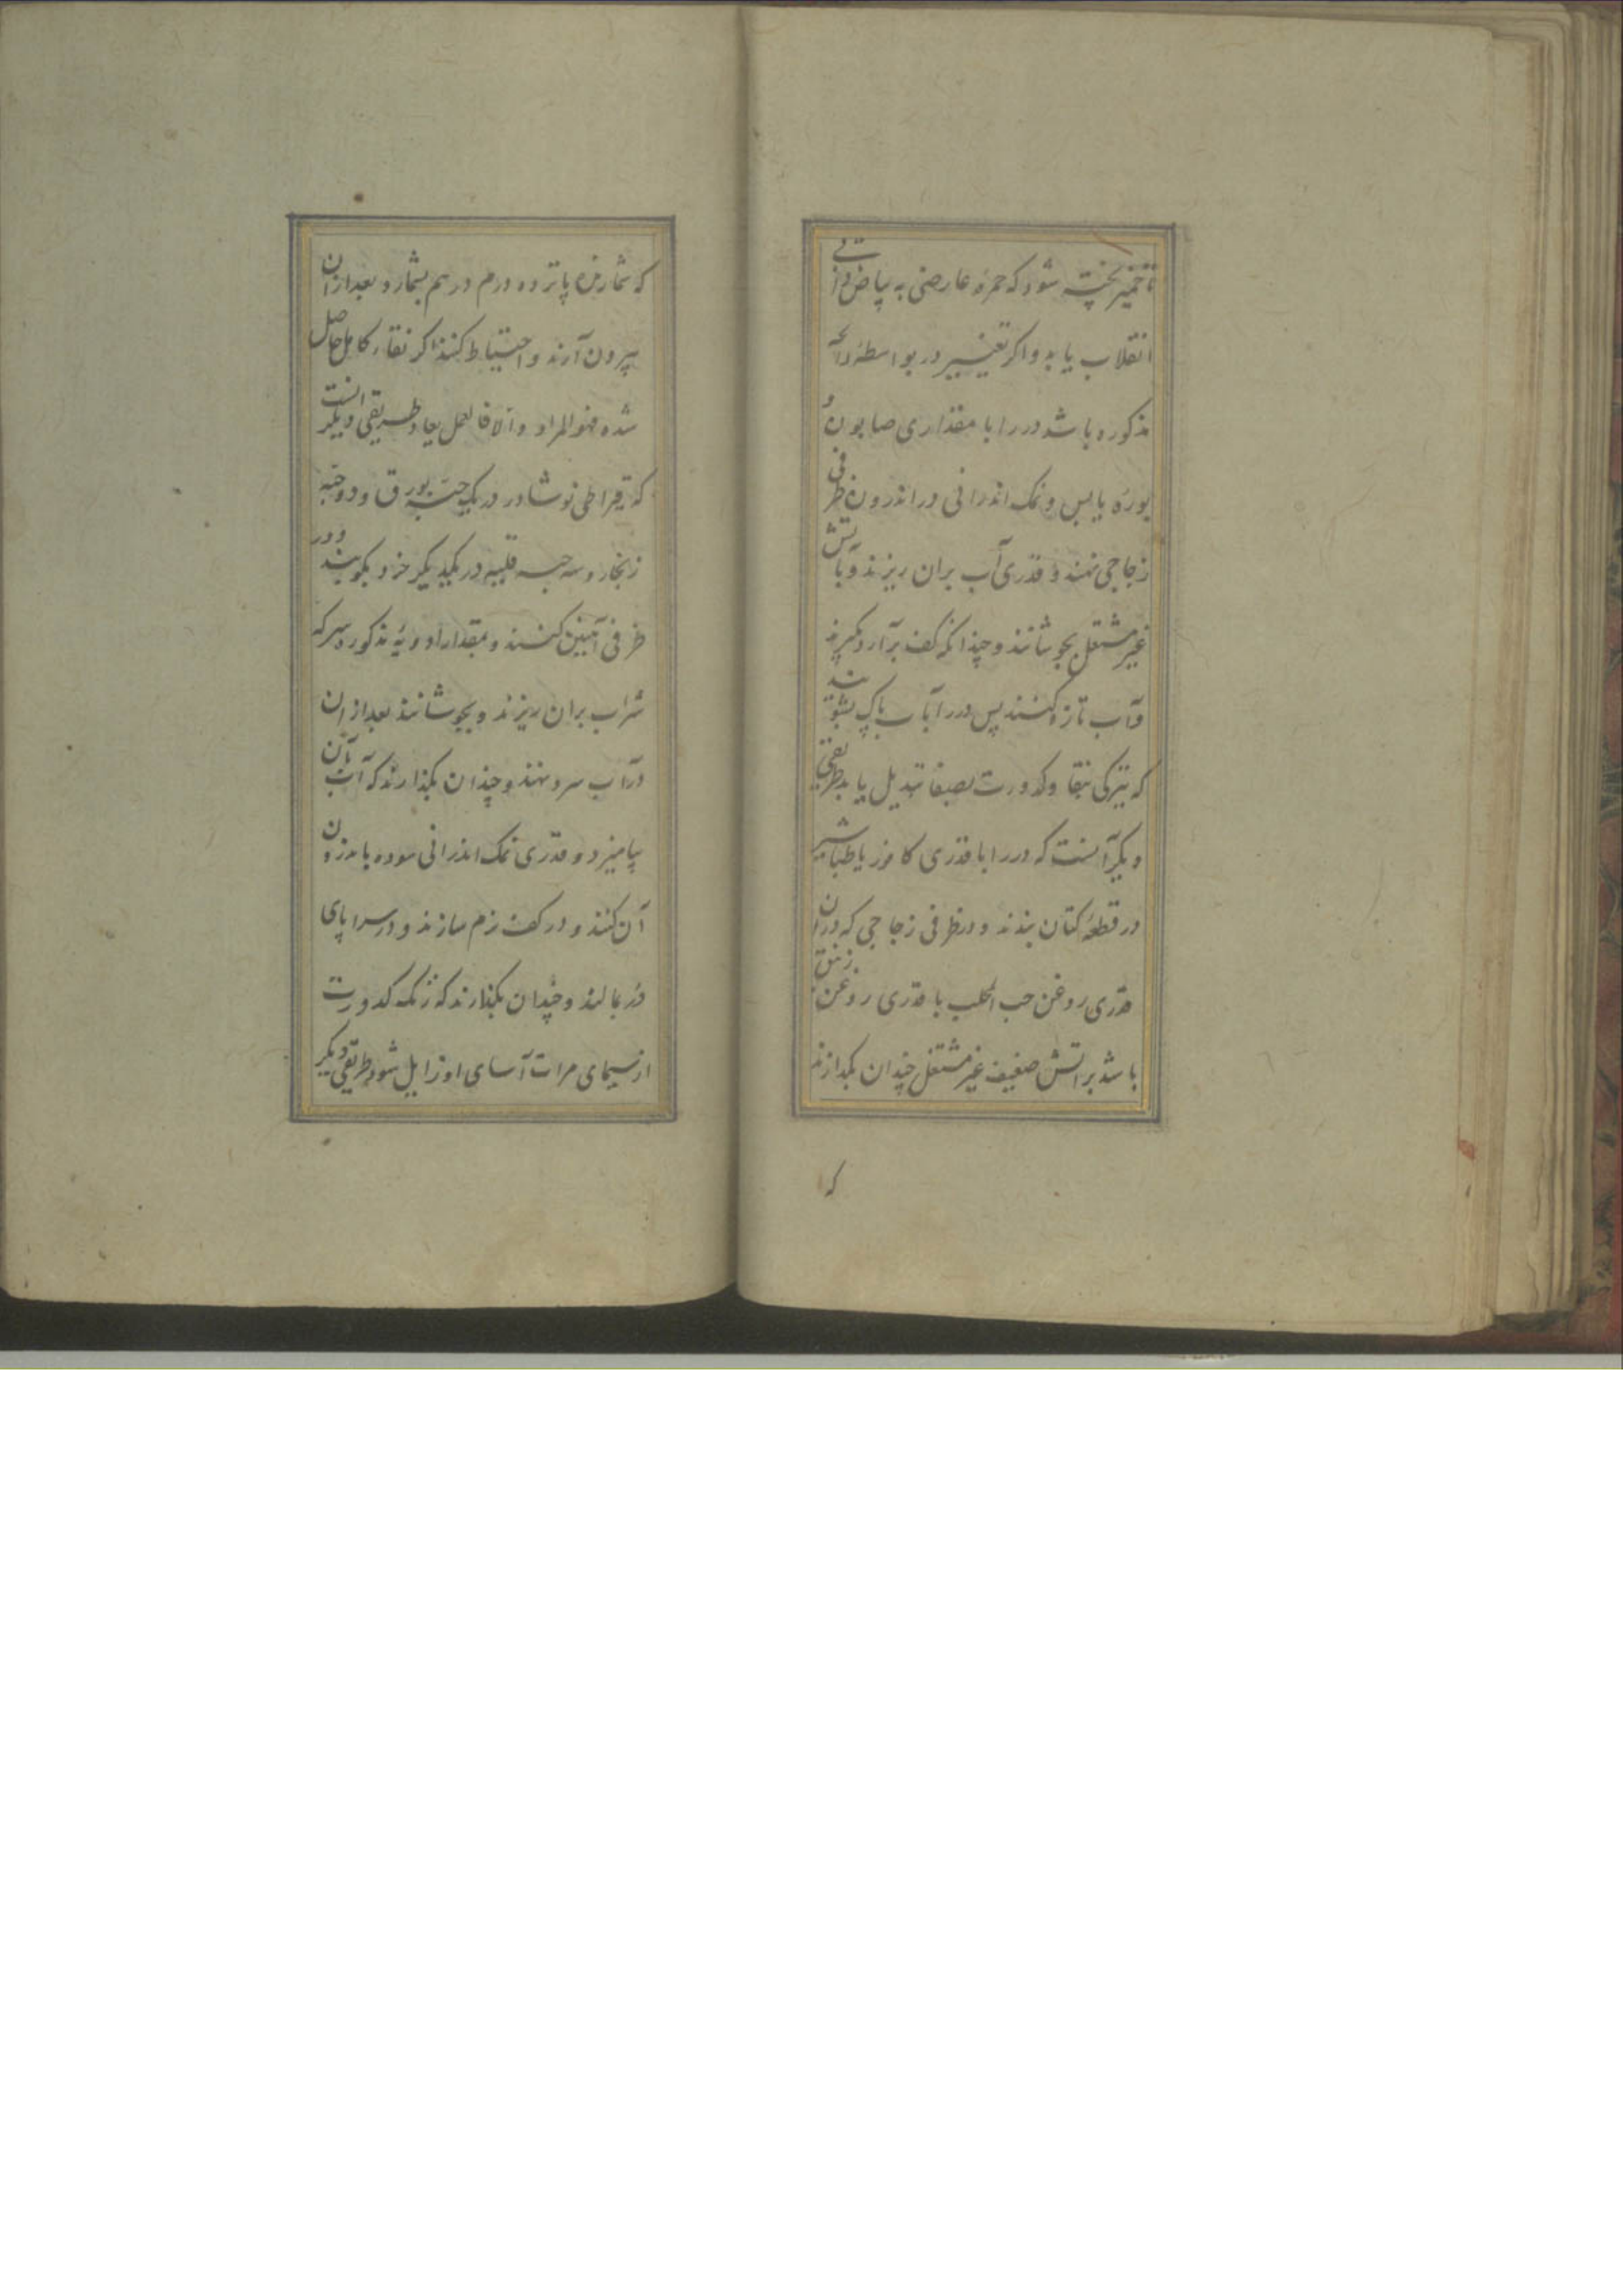 تا خمیر پخته شود که حمرهٔ عارضی به بیاض ذاتی
انقلاب یابد واکر تغییر در بواسطهٔ رائحهٔ
مذکوره باشد در را با مقداری صابون و
بورهٔ یابس و نمک اندرانی در اندرون ظرفی
زجاجی نهند و قدری آب بران ریزند و بآتش
غیر مشتعل بجوشانند و چندانکه کف برآرد بگیرند
وآب تازه کنند پس در را بآب پاک بشویند
که تیزکی بنقا و کدورت بصفا تبدیل یابد طریقی
دیگر آنست که در را با قدری کافور یا طباشیر
در قطعهٔ کتان بندند و در ظرفی زجاجی که دران
قدری روغن حب المحلب با قدری روغن زنبق
باشد بر اتش ضعیف غیر مشتعل چندان بگدازند
که
که شمارنده پانزده درم درهم بشمارد بعد ازان
بیرون آرند و احتیاط کنند اکر نقاء کامل حاصل
شده فهو المراد والا فالعمل یعاد طریقی دیگر انست
که قیراطی نوشادر در یک حبه بورق و دو حبه
زنجار و سه حبه قلیه در یکدیگر خرد بکوبند و در
ظرفی آهنین کنند و بمقدار ادویهٔ مذکوره سرکه
شراب بران ریزند و بجوشانند بعد ازان
در آب سرد نهند و چندان بگذارند که آب بآن
بیامیزد و قدری نمک اندرانی سوده باندرون
آن کنند و در کف نرم سازند و در سراپای
در بمالند و چندان بگذارند که زنگه کدورت
از سیمای مرات آسای او زایل شود طریقی دیگر